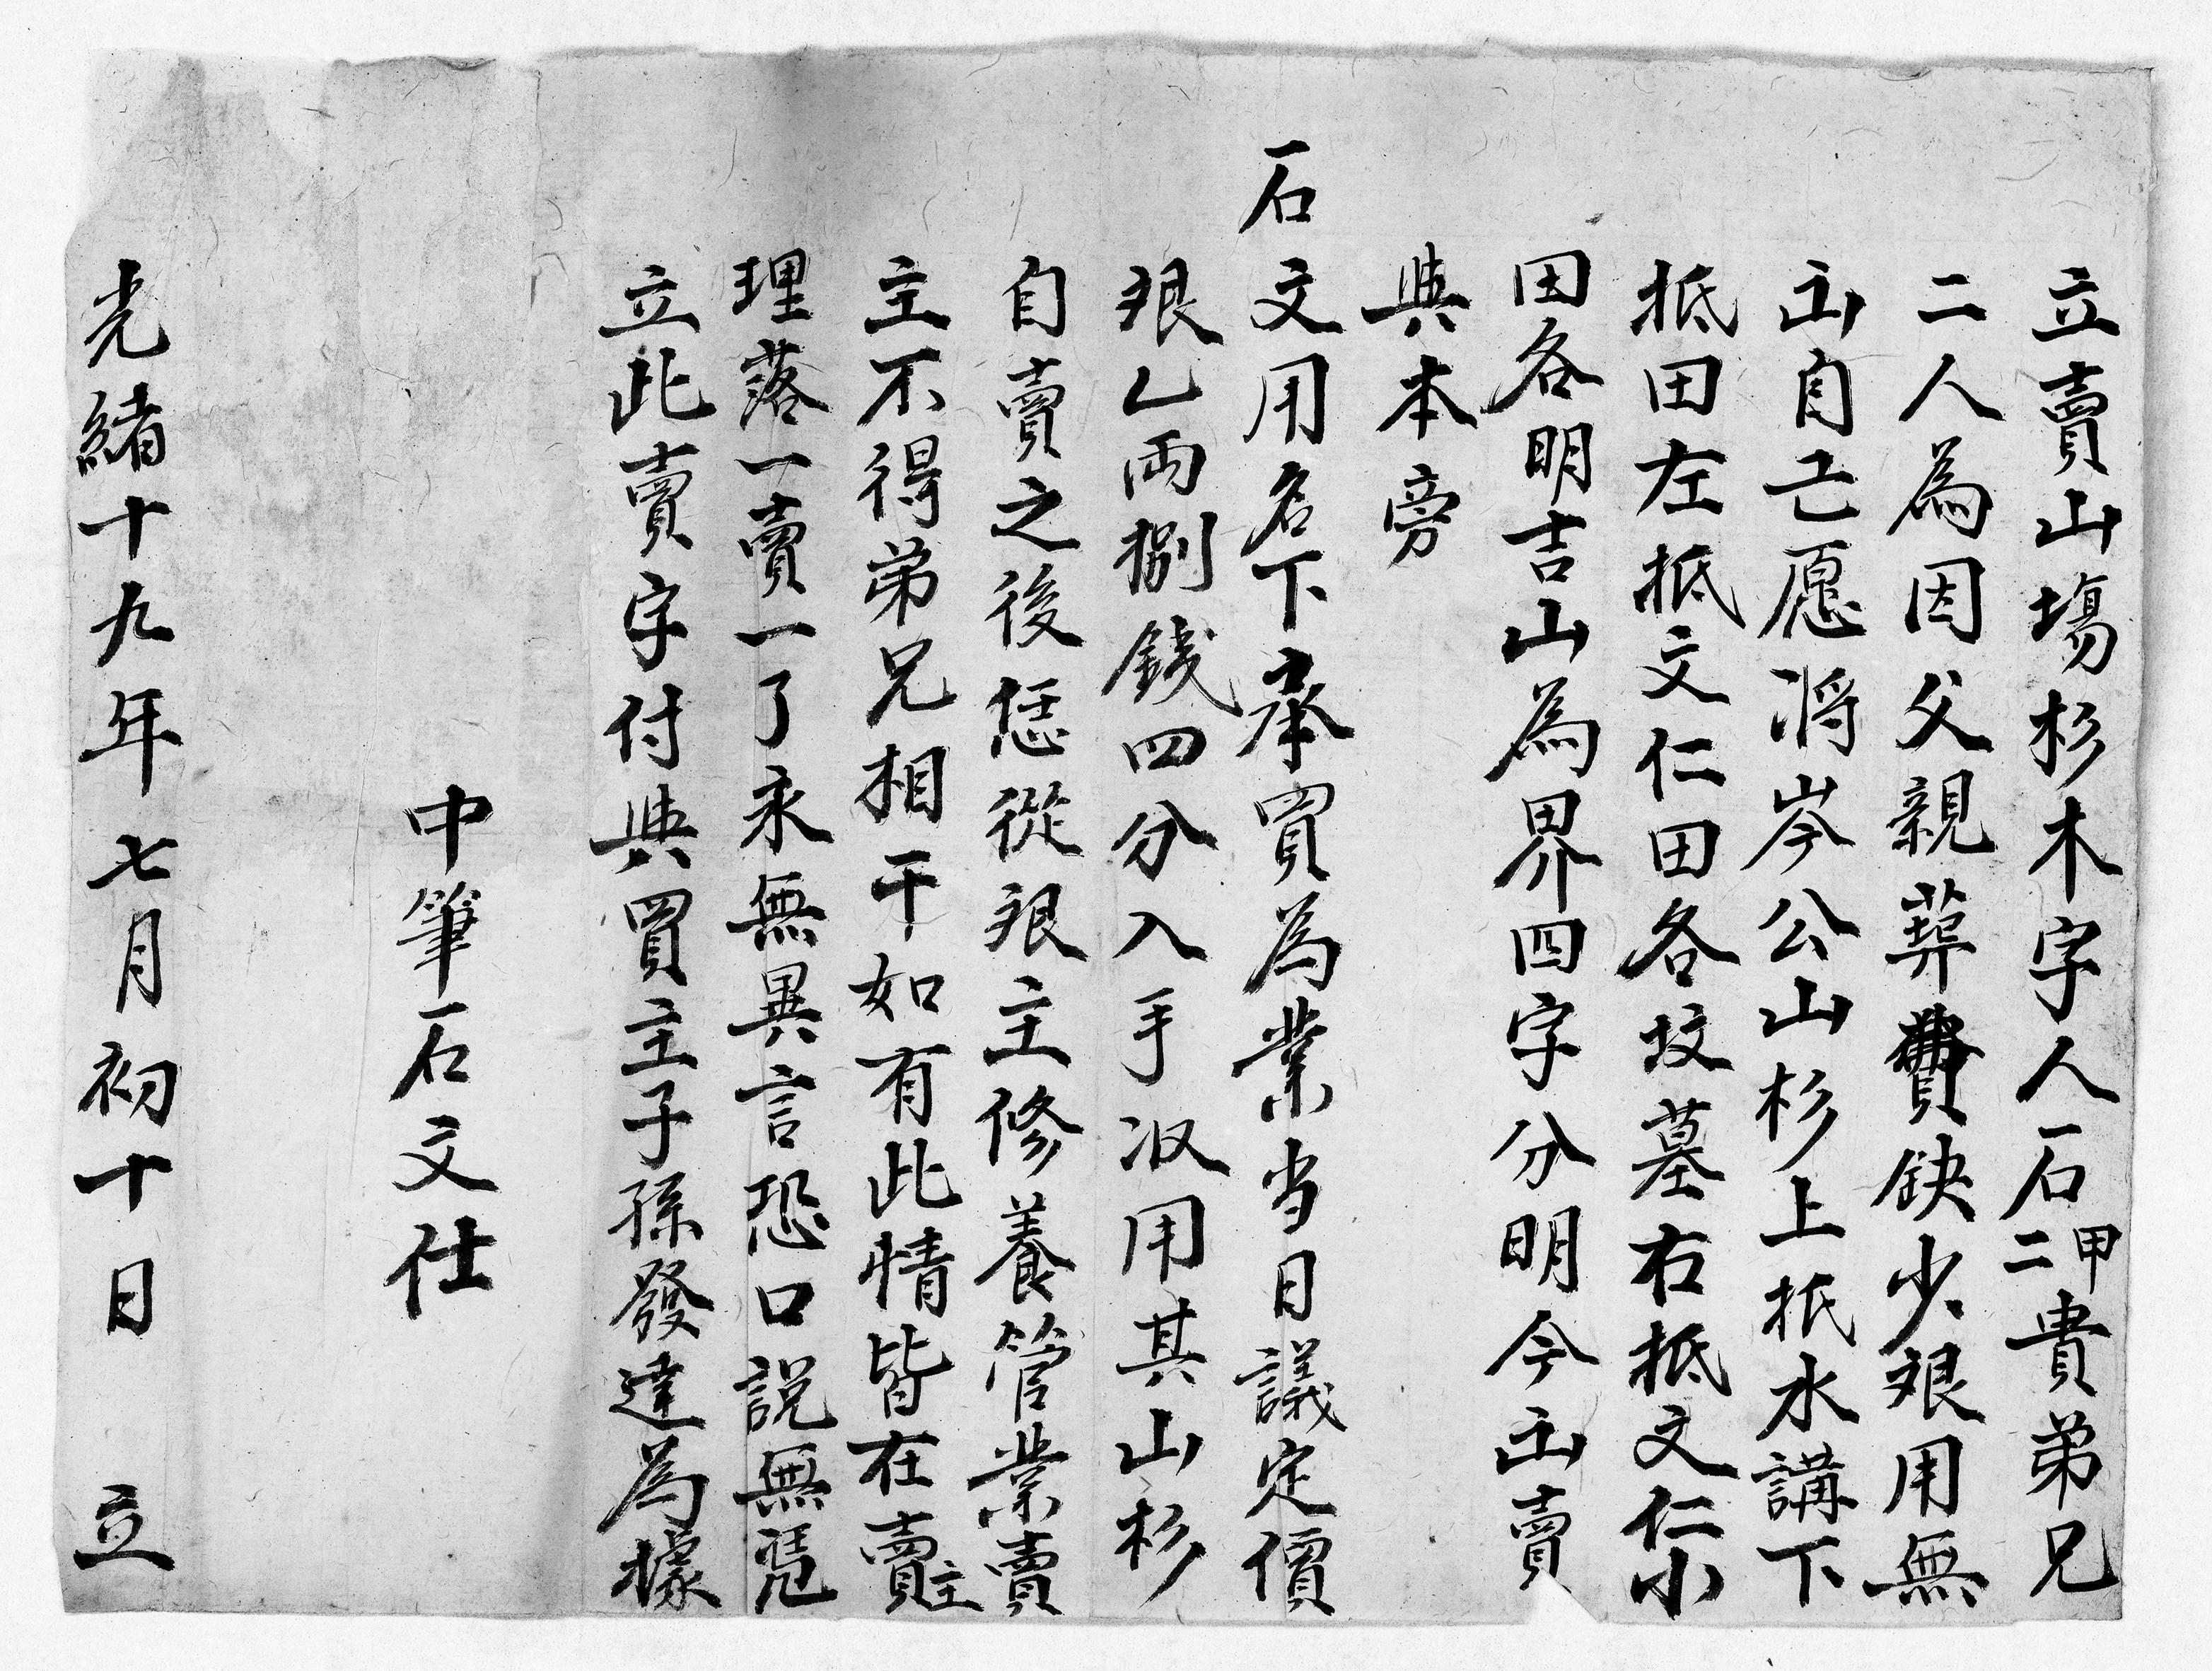 立賣山塲杉木字人石甲二貴弟兄
二人為因父親葬費缺少艮用無
出自己愿将岑公山杉上抵水講下
抵田左抵文仁田各坟墓右抵文仁小
田各明吉山為界四字分明今出賣
與本旁
石文用名下承買為業当日議定價
艮乙両捌錢四分入手収用其山杉
自賣之後恁從艮主修養管業賣
主不得弟兄相干如有此情皆在賣主
理落一賣一了永無異言恐口説無凴
立此賣字付與買主子孫發達為據
中筆石文仕
光緒十九年七月初十日立